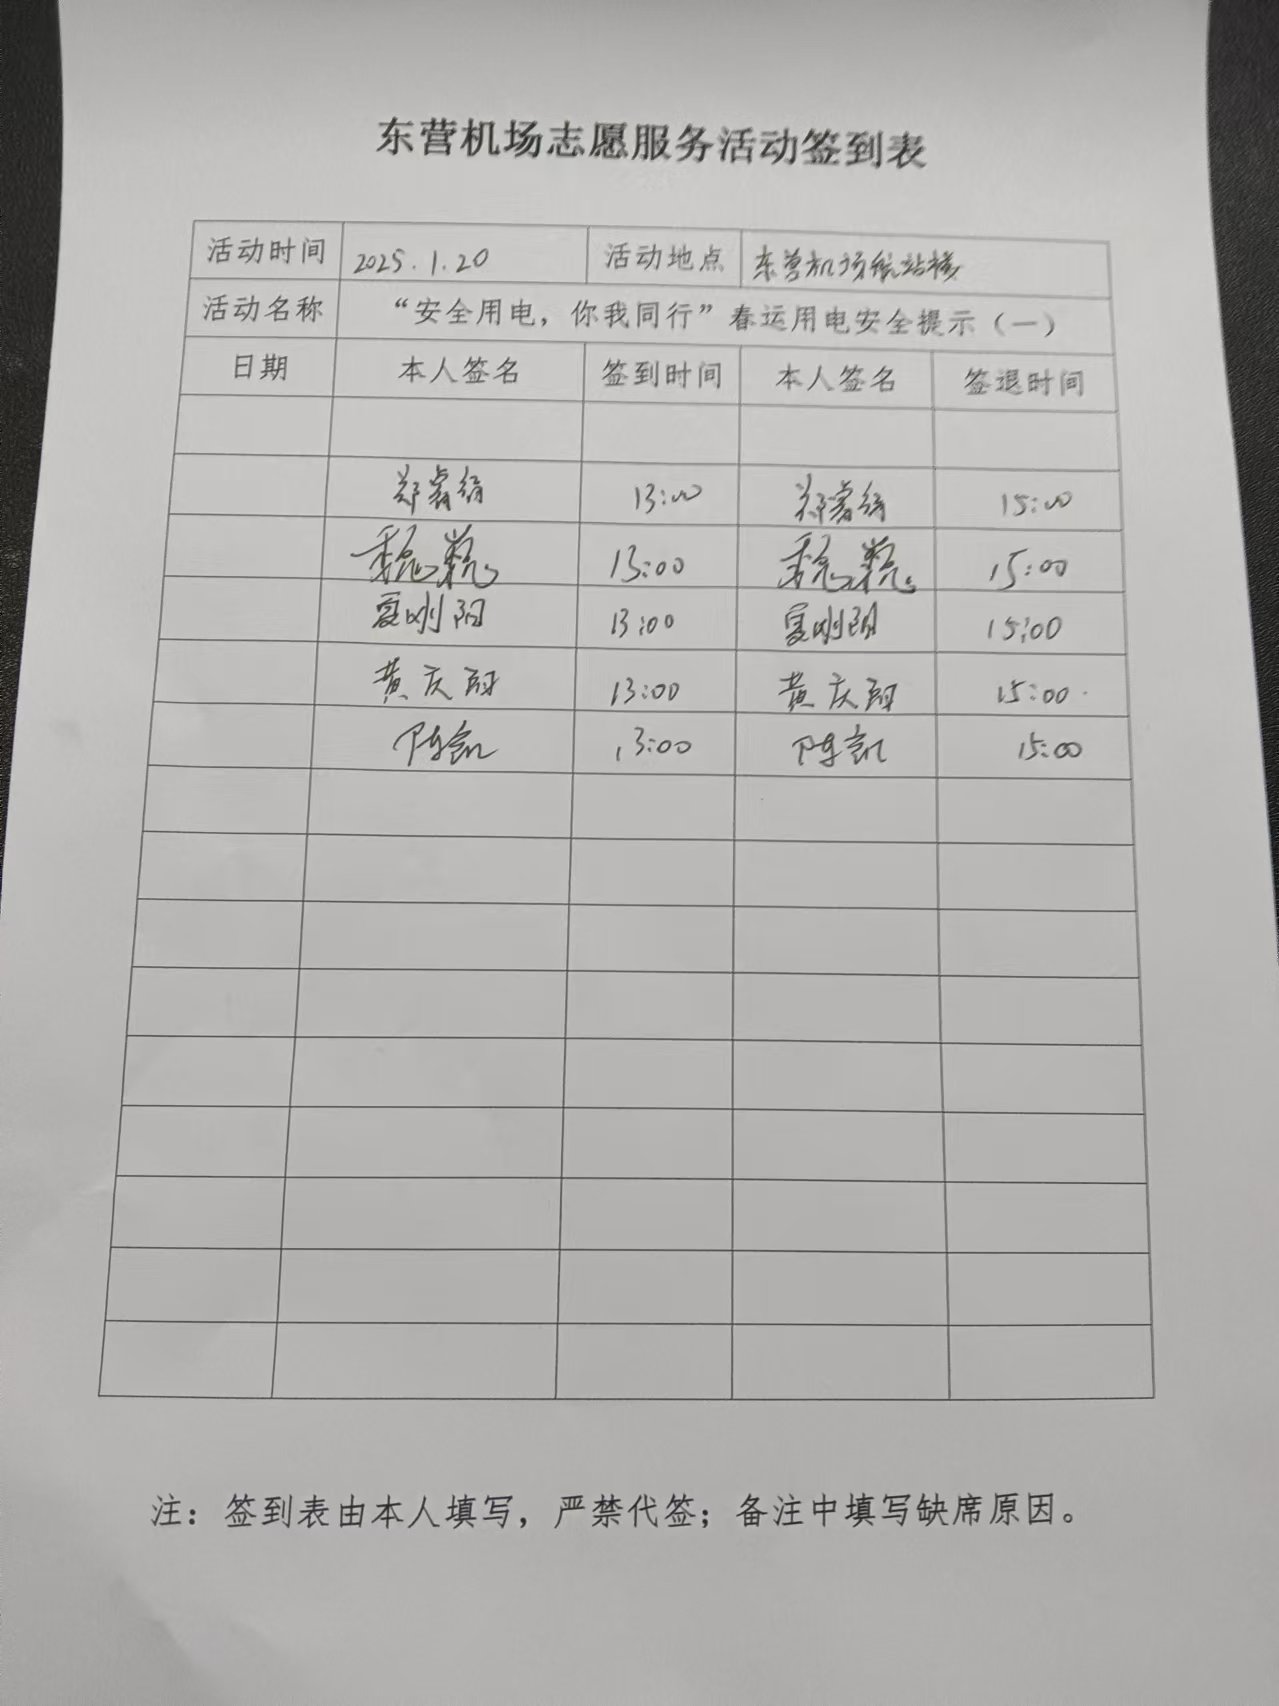 东营机场志愿服务活动签到表
活动时间 2025.1.20 活动地点 东营机场航站楼
活动名称 “安全用电，你我同行”春运用电安全提示（一）
日期 本人签名 签到时间 本人签名 签退时间
郑睿绮 13:00 郑睿绮 15:00
魏巍 13:00 魏巍 15:00
夏刚阳 13:00 夏刚阳 15:00
黄庆 13:00 黄庆 15:00
陈凯 13:00 陈凯 15:00
注：签到表由本人填写，严禁代签；备注中填写缺席原因。